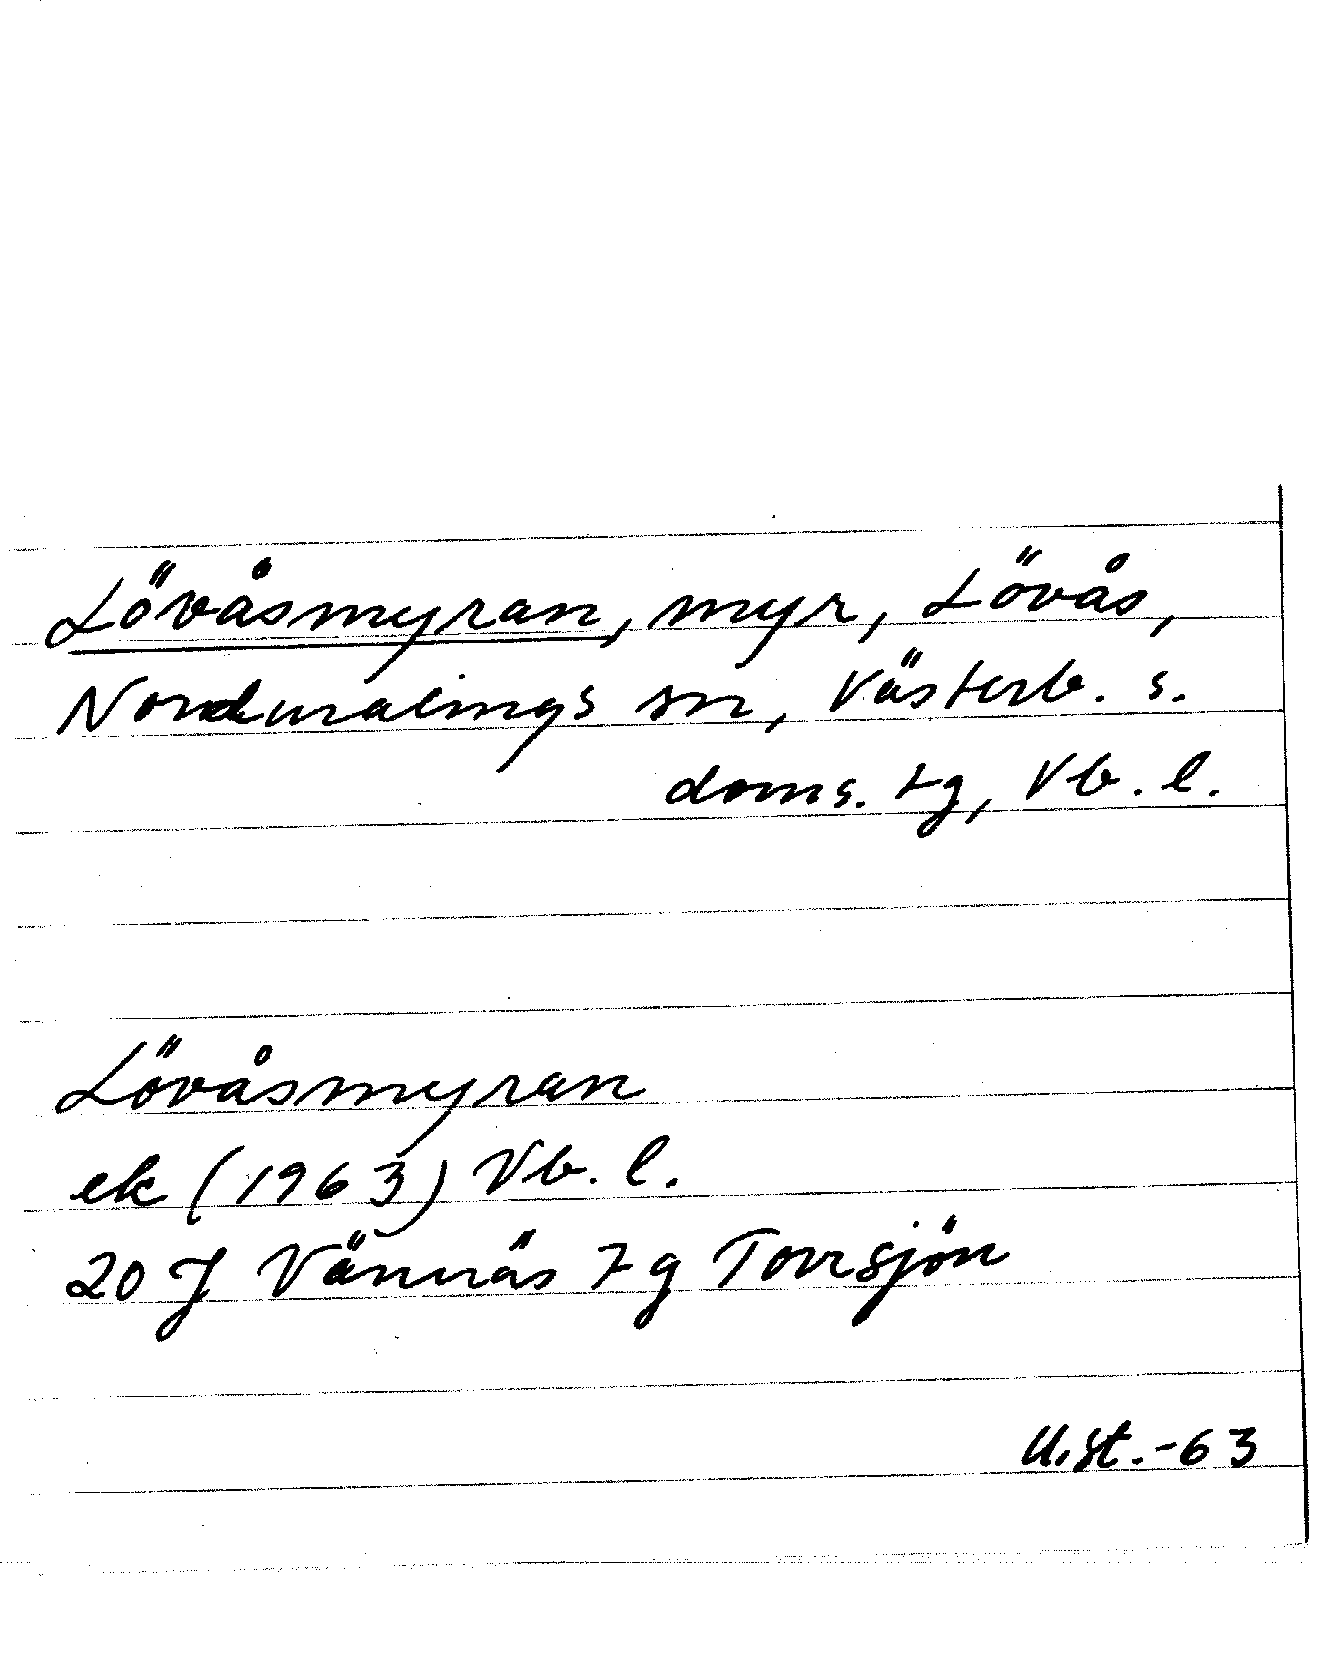 Lövåsmyran, myr, Lövås,
Nordmalings sn, Västerb. s.
doms. tg, Vb. l.
Lövåsmyran
ek (1963) Vb. l.
20 J Vännäs tg Torrsjön
U.St.-63